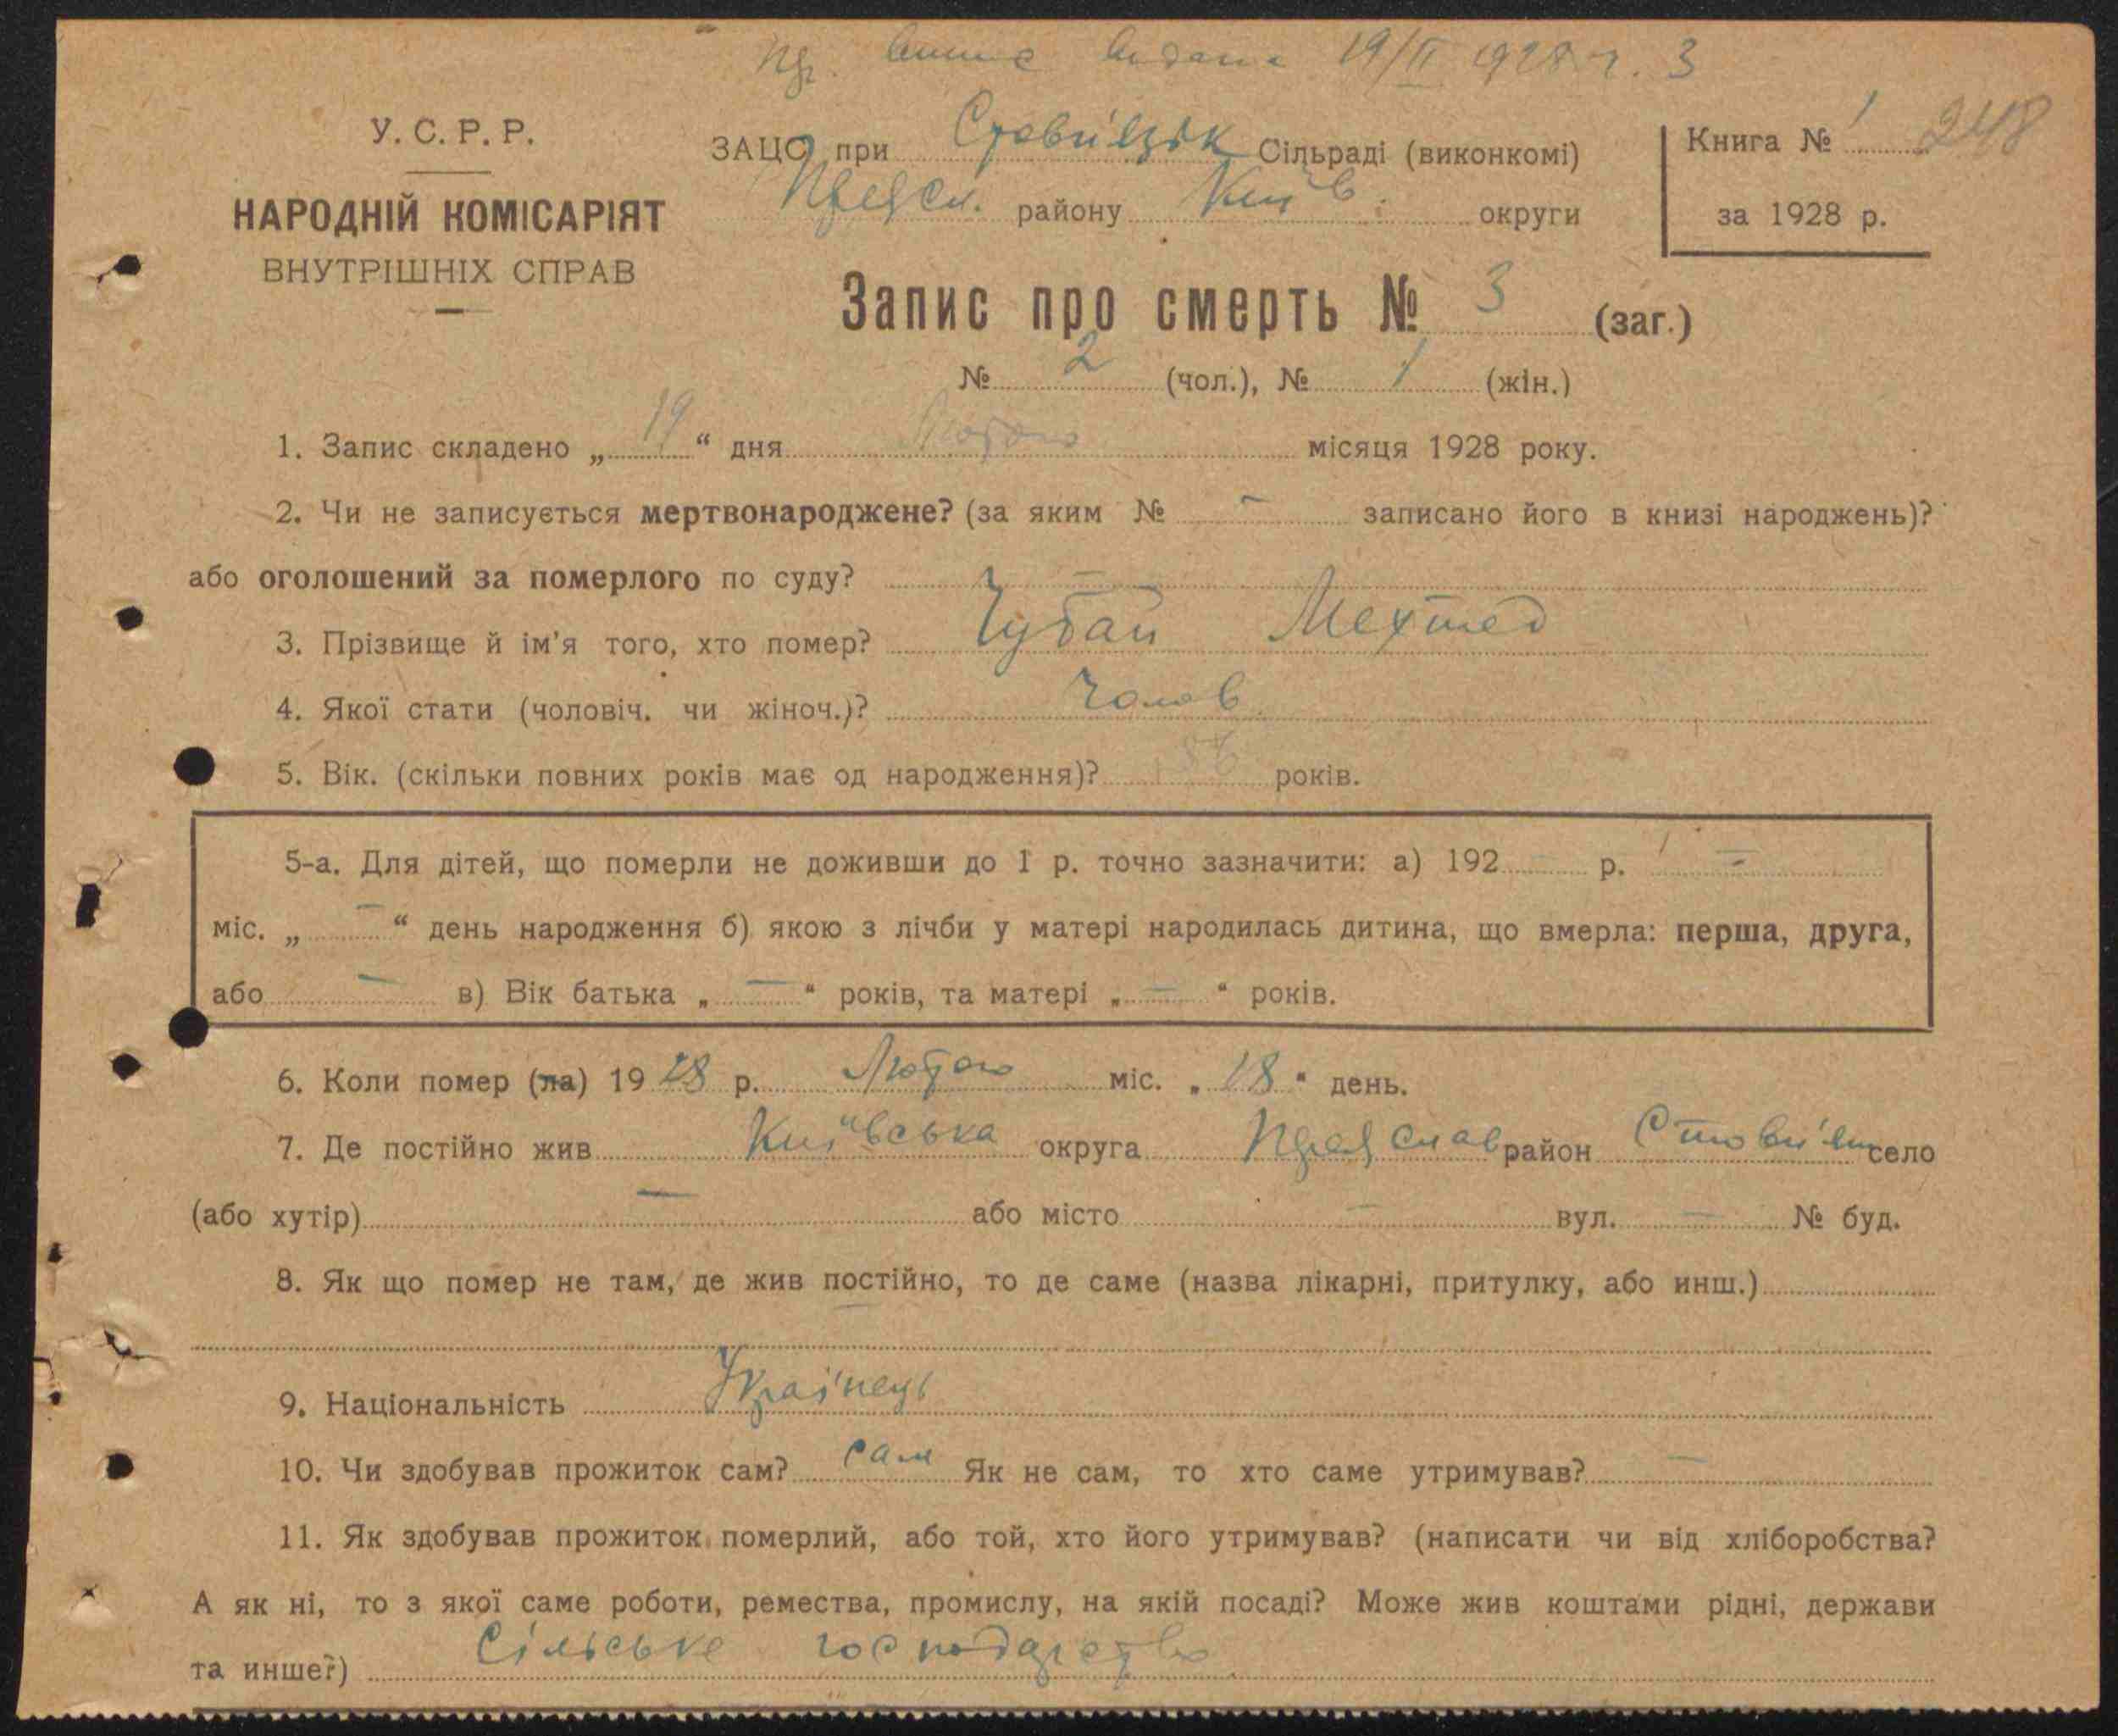 19/II 1928 р. 3
У. С. Р. Р.
НАРОДНІЙ КОМІСАРІЯТ
ВНУТРІШНІХ СПРАВ
ЗАЦС при Сільраді (виконкомі)
району Київ. округи
Книга № 1 248
за 1928 р.
Запис про смерть № 3 (заг.)
№ 2 (чол.), № 1 (жін.)
1. Запис складено „ 19 “ дня Лютого місяця 1928 року.
2. Чи не записується мертвонароджене? (за яким № – записано його в книзі народжень)?
або оголошений за померлого по суду? –
3. Прізвище й ім'я того, хто помер? Чубай
4. Якої стати (чоловіч. чи жіноч.)? Чолов
5. Вік. (скільки повних років має од народження)? років.
5-а. Для дітей, що померли не доживши до 1 р. точно зазначити: а) 192 – р. –
міс. „ – “ день народження б) якою з лічби у матері народилась дитина, що вмерла: перша, друга,
або – в) Вік батька „ – “ років, та матері „ – “ років.
6. Коли помер (ла) 19 28 р. Лютого міс. „ 18 “ день.
7. Де постійно жив Київська округа район село
(або хутір) – або місто – вул. – № буд.
8. Як що помер не там, де жив постійно, то де саме (назва лікарні, притулку, або инш.)
–
9. Національність Українець
10. Чи здобував прожиток сам? сам Як не сам, то хто саме утримував? –
11. Як здобував прожиток померлий, або той, хто його утримував? (написати чи від хліборобства?
А як ні, то з якої саме роботи, ремества, промислу, на якій посаді? Може жив коштами рідні, держави
та инше?) Сільське господарство